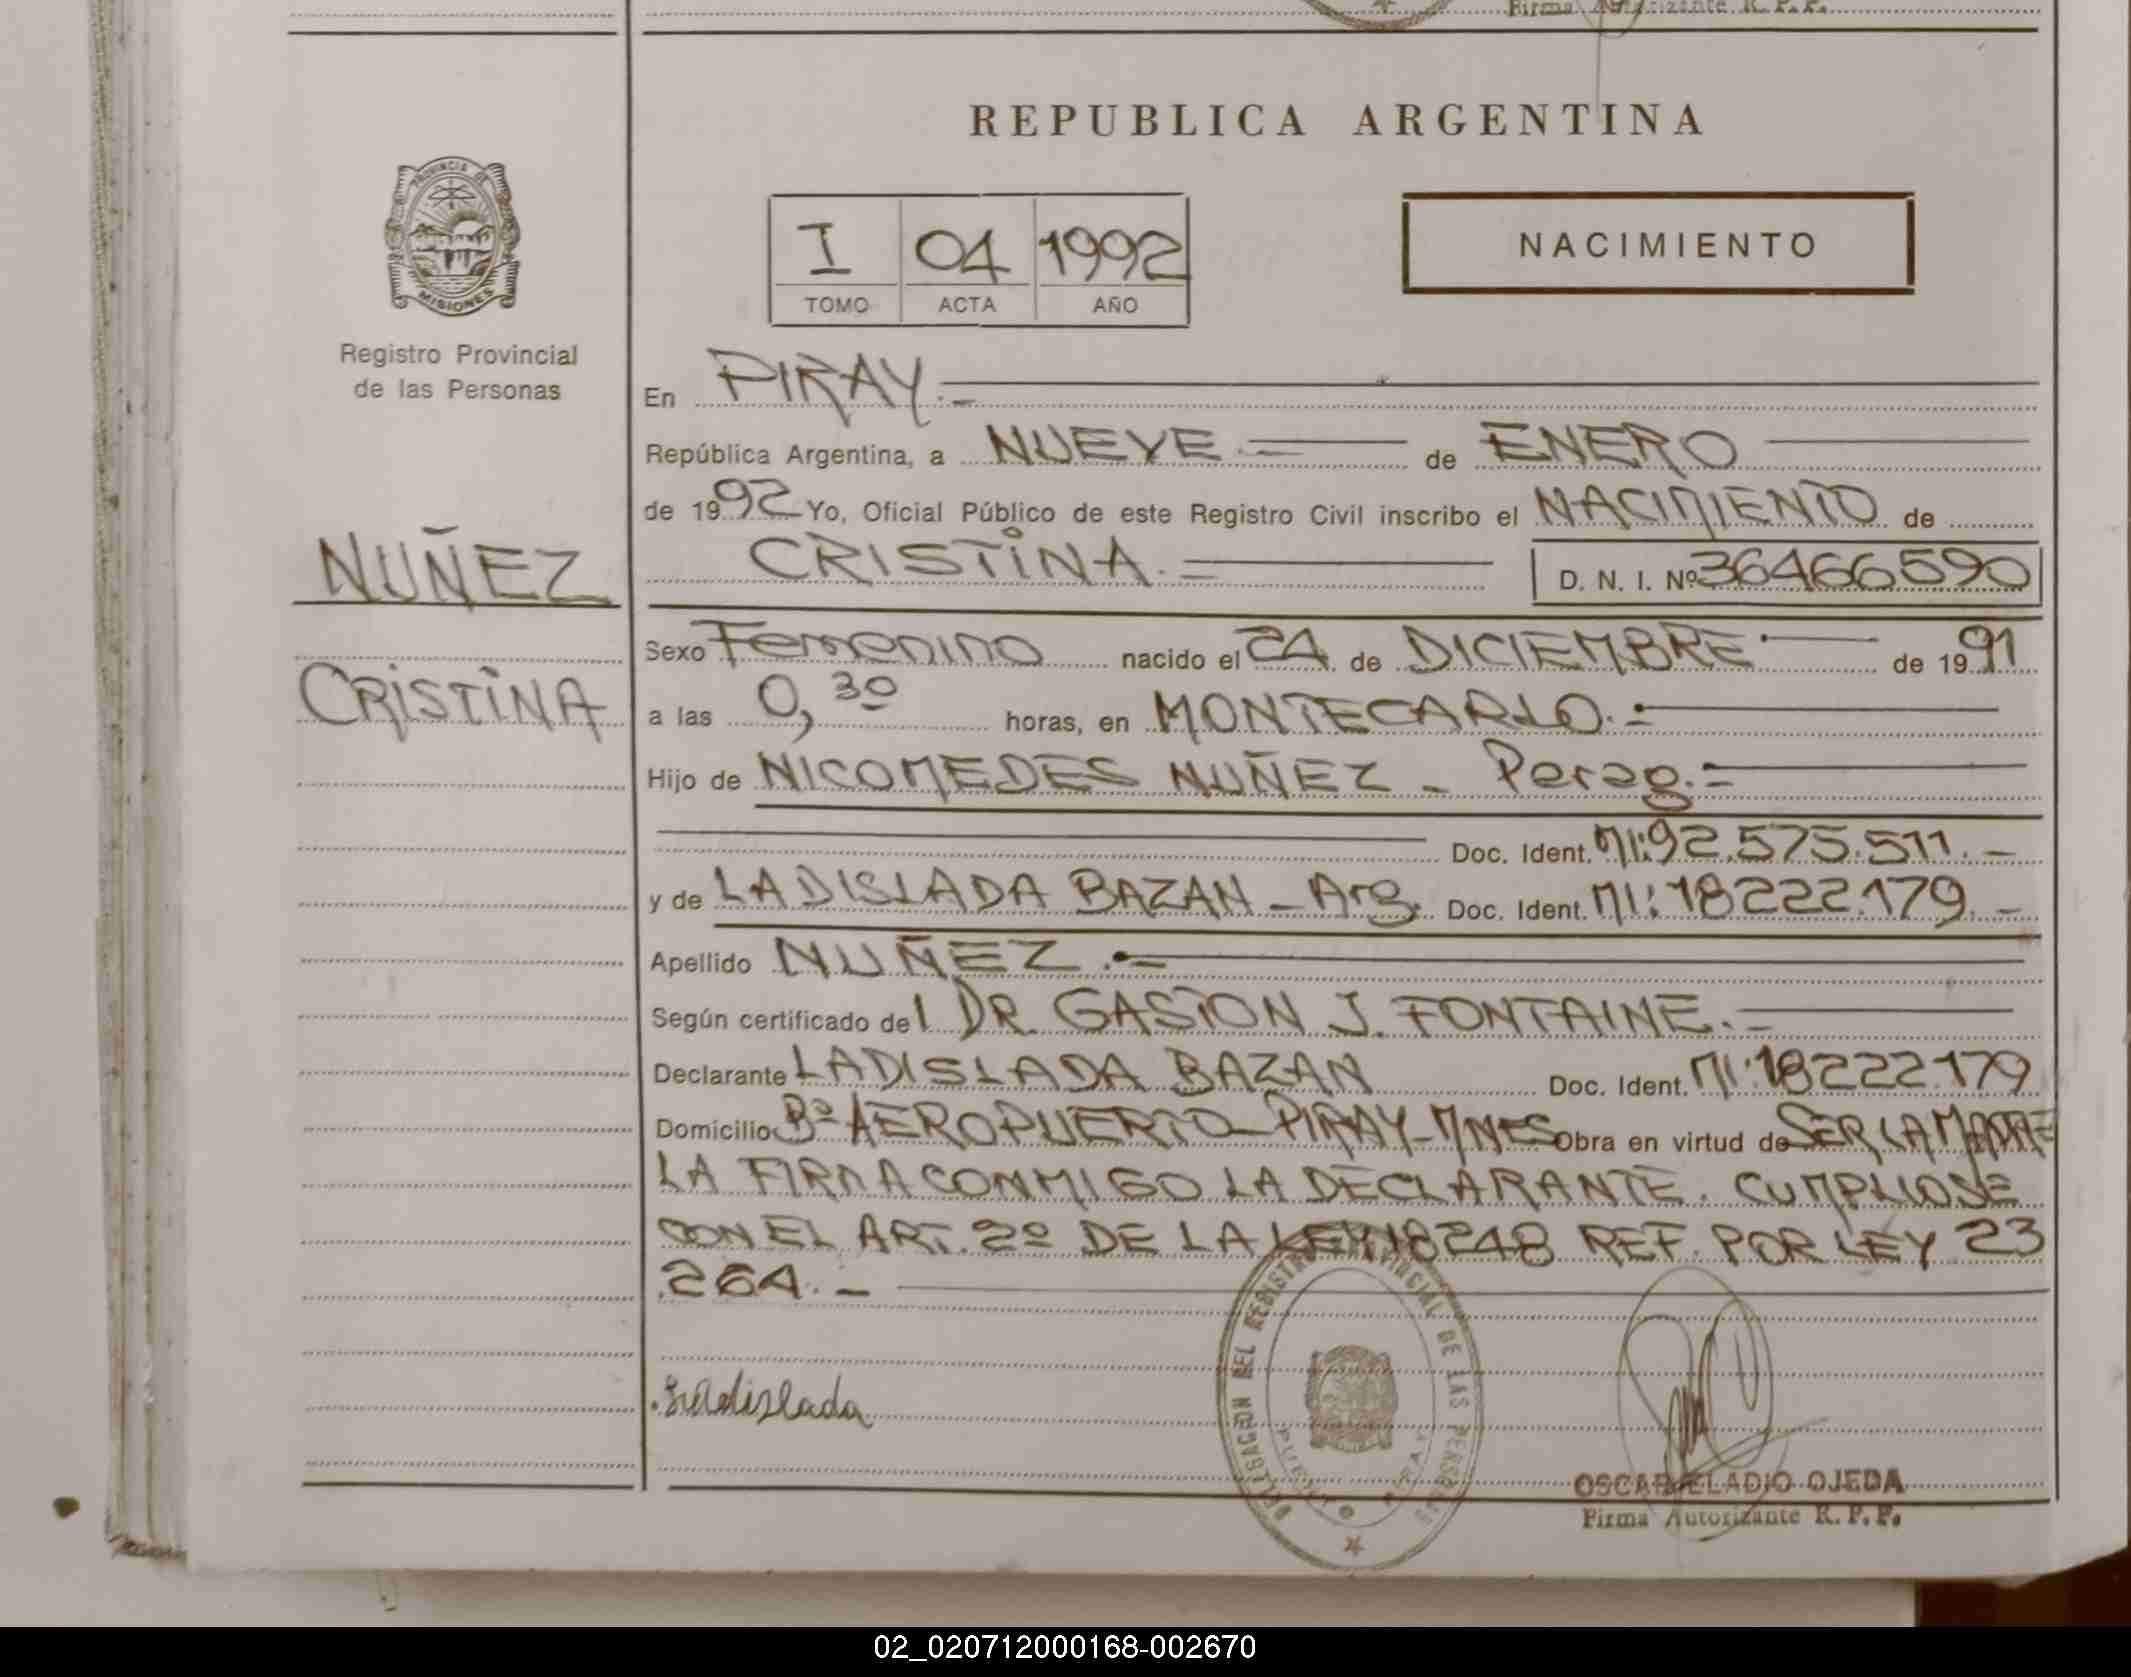 Firma Autorizante R. P. P.
REPUBLICA ARGENTINA
PROVINCIA DE
MISIONES
Registro Provincial
de las Personas
I 04 1992
TOMO ACTA AÑO
NACIMIENTO
En PIRAY.-
República Argentina, a NUEVE de ENERO
de 1992 Yo, Oficial Público de este Registro Civil inscribo el NACIMIENTO de
NUÑEZ
CRISTINA. D. N. I. Nº 36466590
Sexo Femenino nacido el 24 de DICIEMBRE de 1991
CRISTINA
a las 0,30 horas, en MONTECARLO.-
Hijo de NICOMEDES NUÑEZ - Parag.=
Doc. Ident. MI:92.575.511.-
y de LADISLADA BAZAN - Arg. Doc. Ident. MI:18222.179.-
Apellido NUÑEZ.-
Según certificado del DR. GASTON J. FONTAINE.-
Declarante LADISLADA BAZAN Doc. Ident. MI:18222.179
Domicilio Bº AEROPUERTO - PIRAY - MNES Obra en virtud de SER LA MADRE
LA FIRMA CONMIGO LA DECLARANTE. CUMPLIOSE
CON EL ART. 2º DE LA LEY 18248 REF. POR LEY 23
264.-
DELEGACION DEL REGISTRO PROVINCIAL DE LAS PERSONAS
PUERTO PIRAY
Ladislada
OSCAR ELADIO OJEDA
Firma Autorizante R. P. P.
02_020712000168-002670